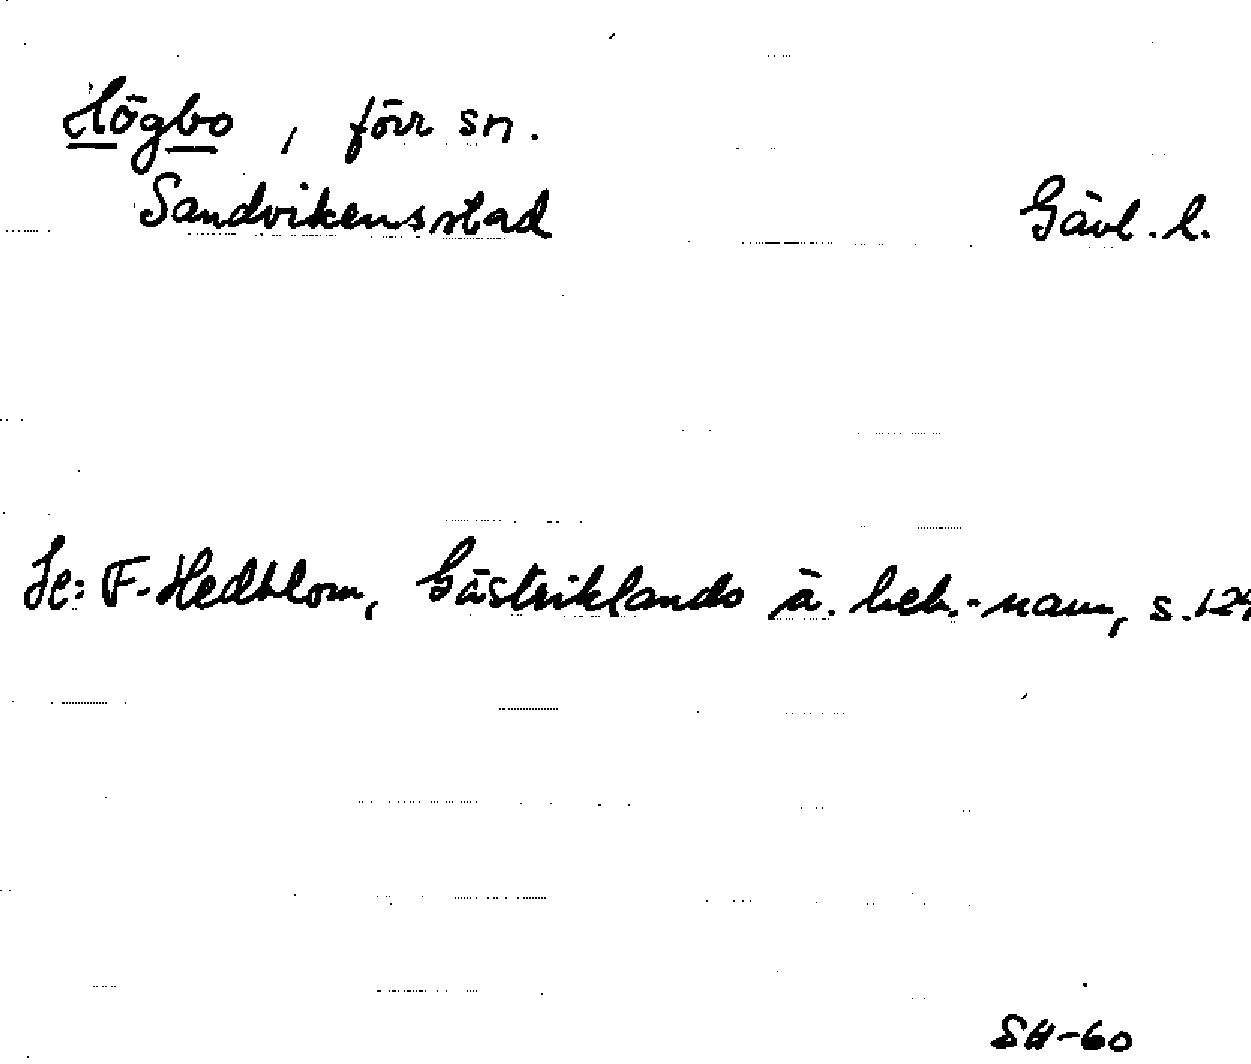 Högbo, förr sn.
Sandvikens stad Gävl. l.
Se: F. Hedblom, Gästriklands ä. beb.-namn, s. 124
SH-60